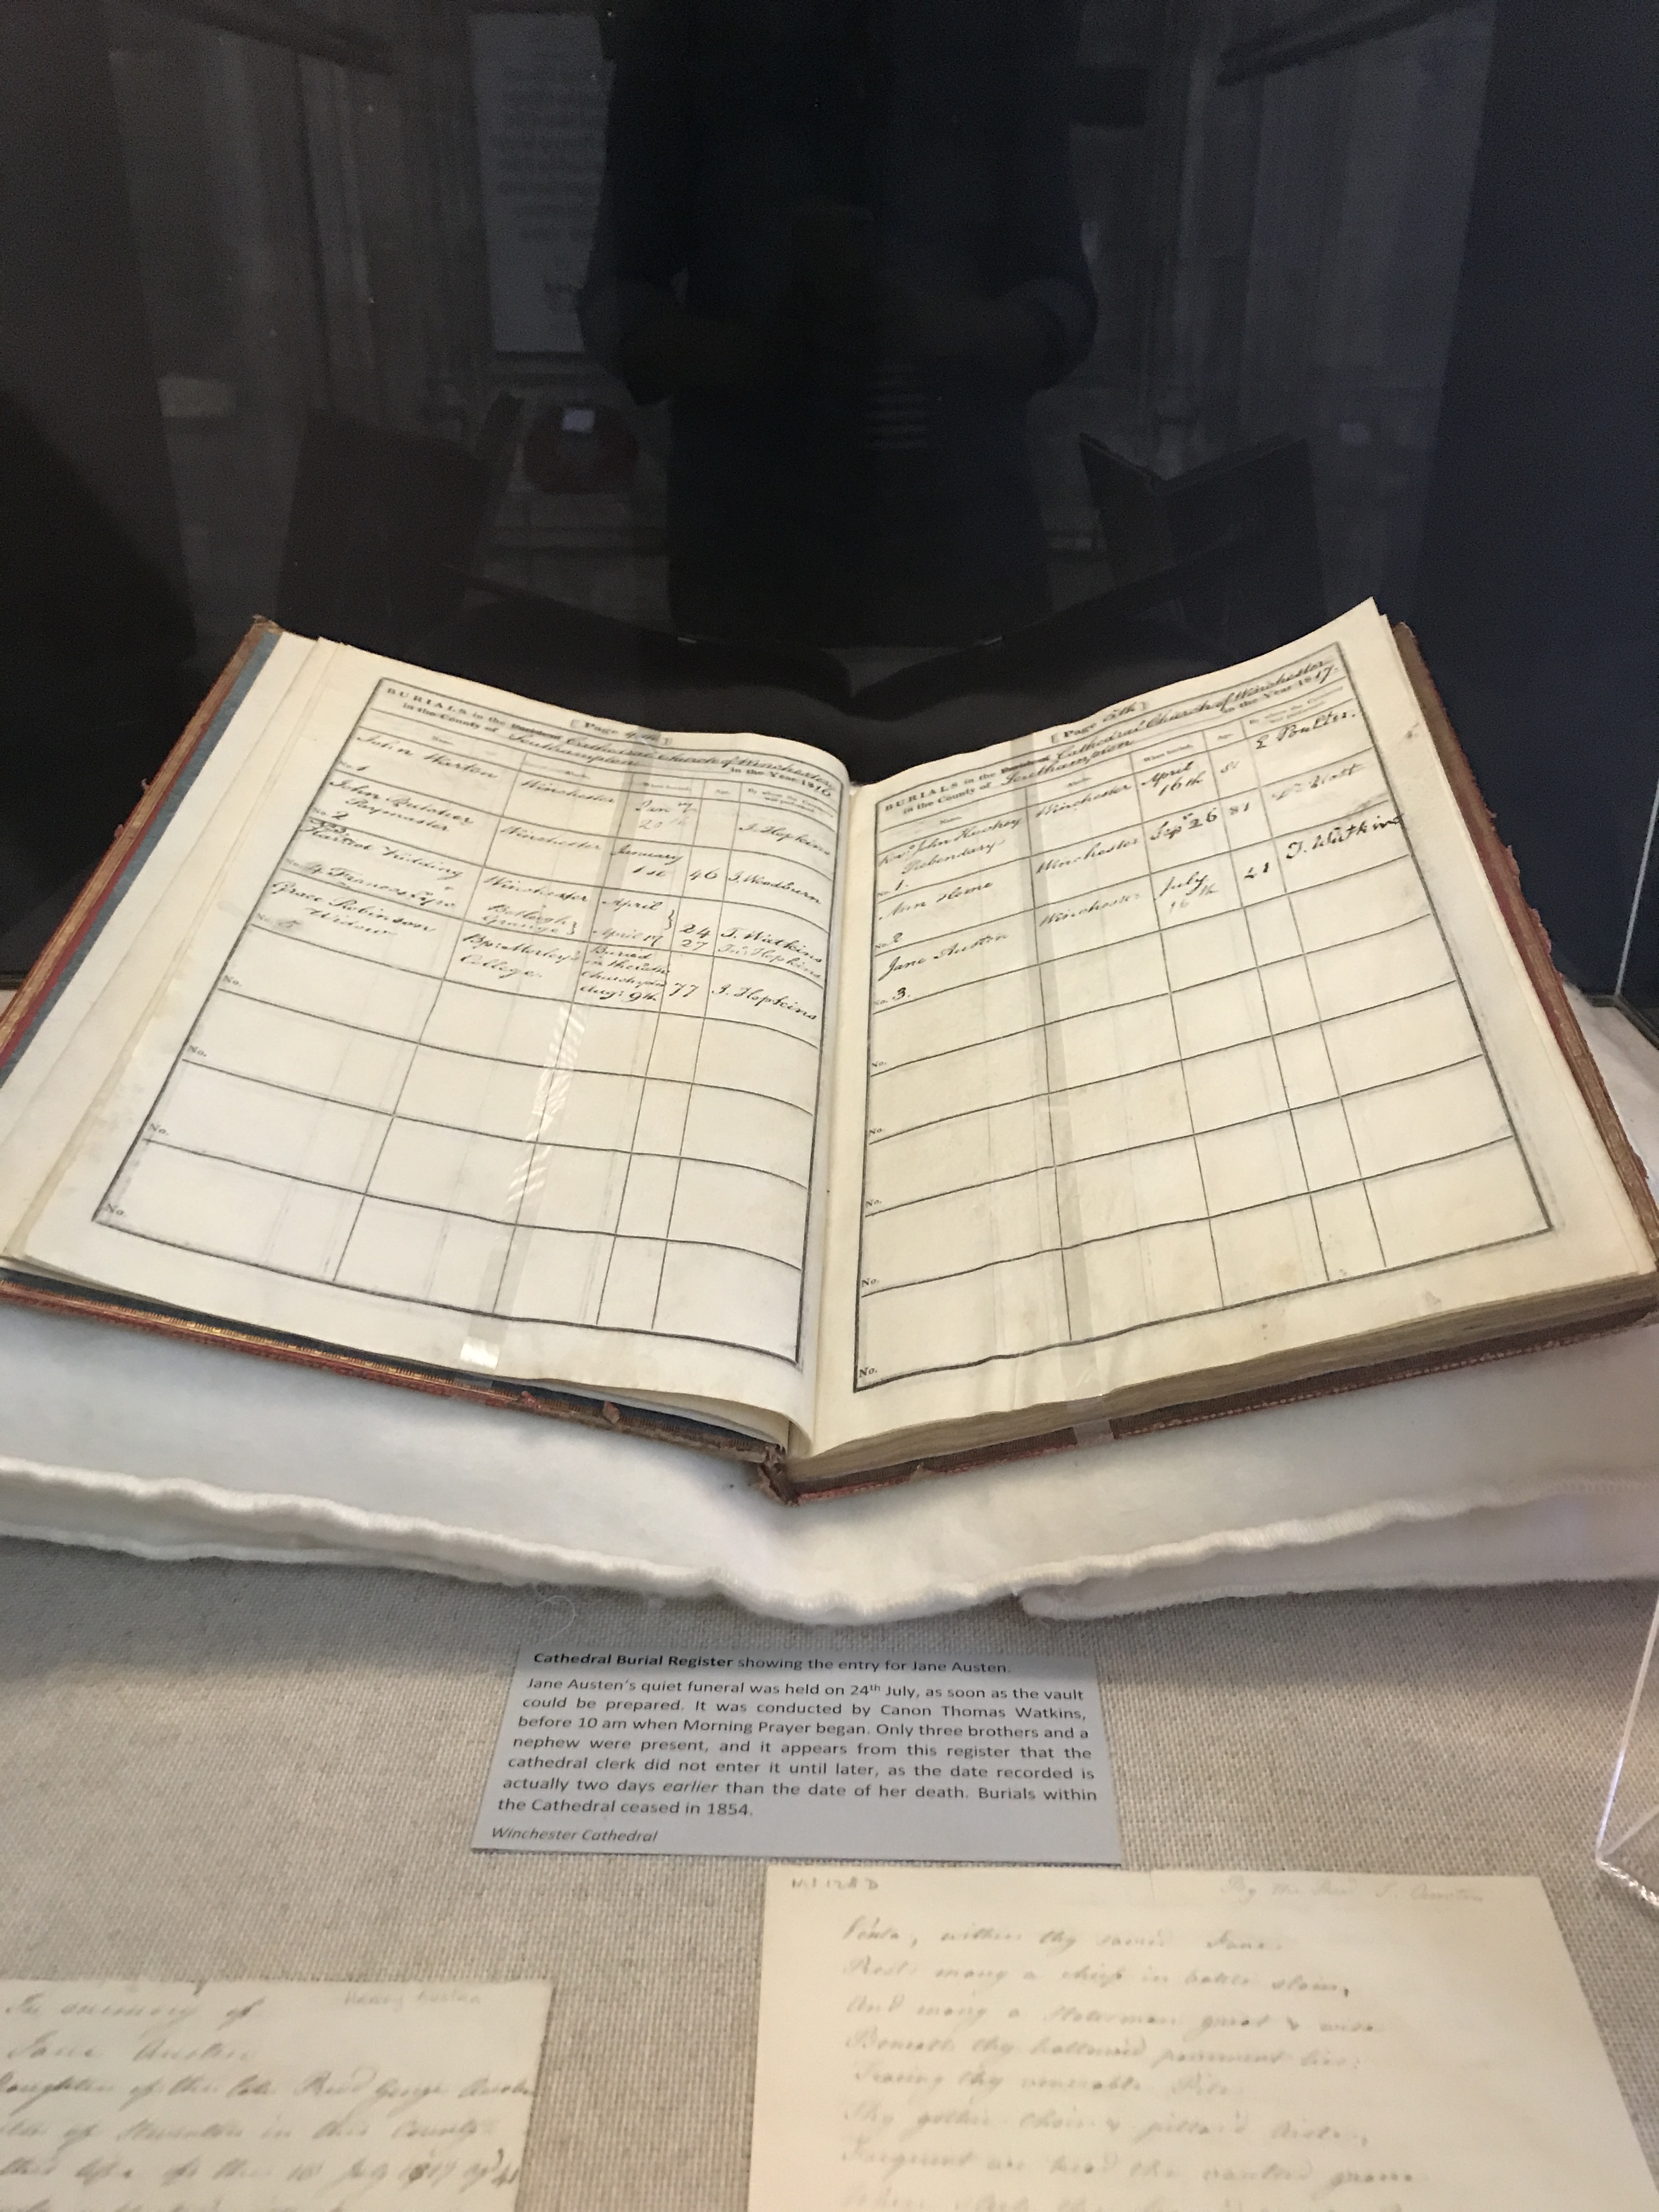 [Page 4th]
BURIALS in the Cathedral Church of Winchester
in the County of Southampton in the Year 1816
Name. Abode. When buried. Age. By whom the Ceremony was performed.
John Warton Winchester Jany J. Hopkins
No. 1
John Butcher Paymaster Winchester January 1st 46 J. Woodburn
No. 2
Harriot Winchester April 24 T. Watkins
No. 4 Frances April 19 27 Hopkins
Grace Robinson Widow Bp. Morley's College Buried in the Churchyard Augt. 9th 77 J. Hopkins
No. 5
No.
No.
No.
No.
[Page 5th]
BURIALS in the Cathedral Church of Winchester
in the County of Southampton in the Year 1817.
Name. Abode. When buried. Age. By whom the Ceremony was performed.
Revd. John Prebendary Winchester April 16th 81
No. 1.
Ann Winchester Sepr. 26 81
No. 2
Jane Austen Winchester July 16th 41 T. Watkins
No. 3.
No.
No.
No.
No.
No.
Cathedral Burial Register showing the entry for Jane Austen.
Jane Austen's quiet funeral was held on 24th July, as soon as the vault
could be prepared. It was conducted by Canon Thomas Watkins,
before 10 am when Morning Prayer began. Only three brothers and a
nephew were present, and it appears from this register that the
cathedral clerk did not enter it until later, as the date recorded is
actually two days earlier than the date of her death. Burials within
the Cathedral ceased in 1854.
Winchester Cathedral
Henry Austen
In memory of
Jane Austen
daughter of the late Revd George Austen
of Steventon in this County
this life on the 18 July 1817 aged 41
By the Revd J. Austen
Venta, within thy sacred Fane
Rests many a chief in battle slain,
And many a Statesman great & wise
Beneath thy hallow'd pavement lies:
Tracing thy venerable Pile
Thy gothic Choir & pillar'd Aisle,
Frequent we tread the vaulted grave